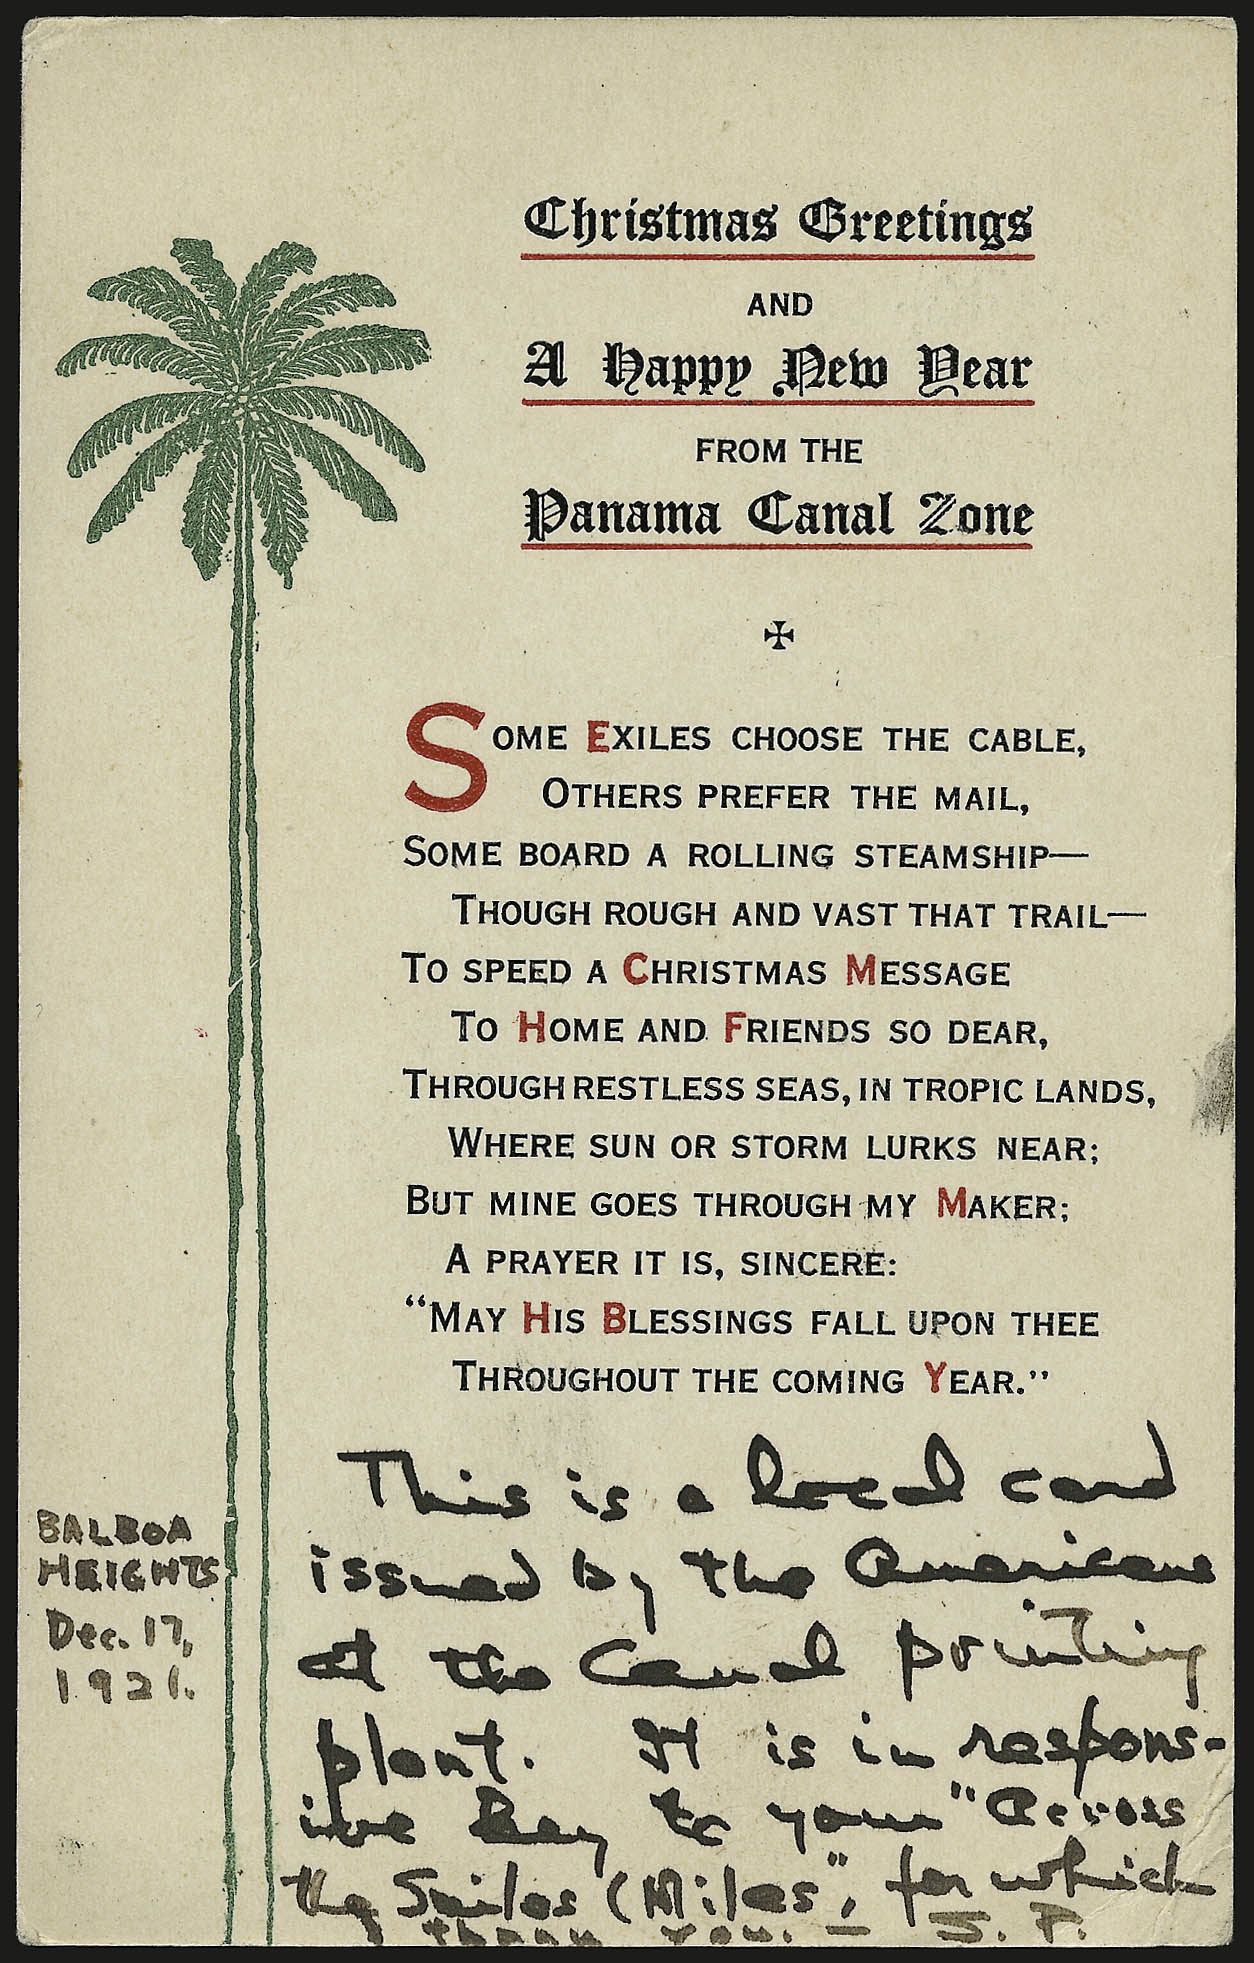 Christmas Greetings
AND
A Happy New Year
FROM THE
Panama Canal Zone
SOME EXILES CHOOSE THE CABLE,
OTHERS PREFER THE MAIL,
SOME BOARD A ROLLING STEAMSHIP—
THOUGH ROUGH AND VAST THAT TRAIL—
TO SPEED A CHRISTMAS MESSAGE
TO HOME AND FRIENDS SO DEAR,
THROUGH RESTLESS SEAS, IN TROPIC LANDS,
WHERE SUN OR STORM LURKS NEAR;
BUT MINE GOES THROUGH MY MAKER;
A PRAYER IT IS, SINCERE:
“MAY HIS BLESSINGS FALL UPON THEE
THROUGHOUT THE COMING YEAR.”
This is a local card
issued by the Americans
at the Canal printing
plant. It is in respons-
ive key to your "Across
the Smiles (Miles", for which
thank you. — S. P.
BALBOA
HEIGHTS
Dec. 17,
1921.